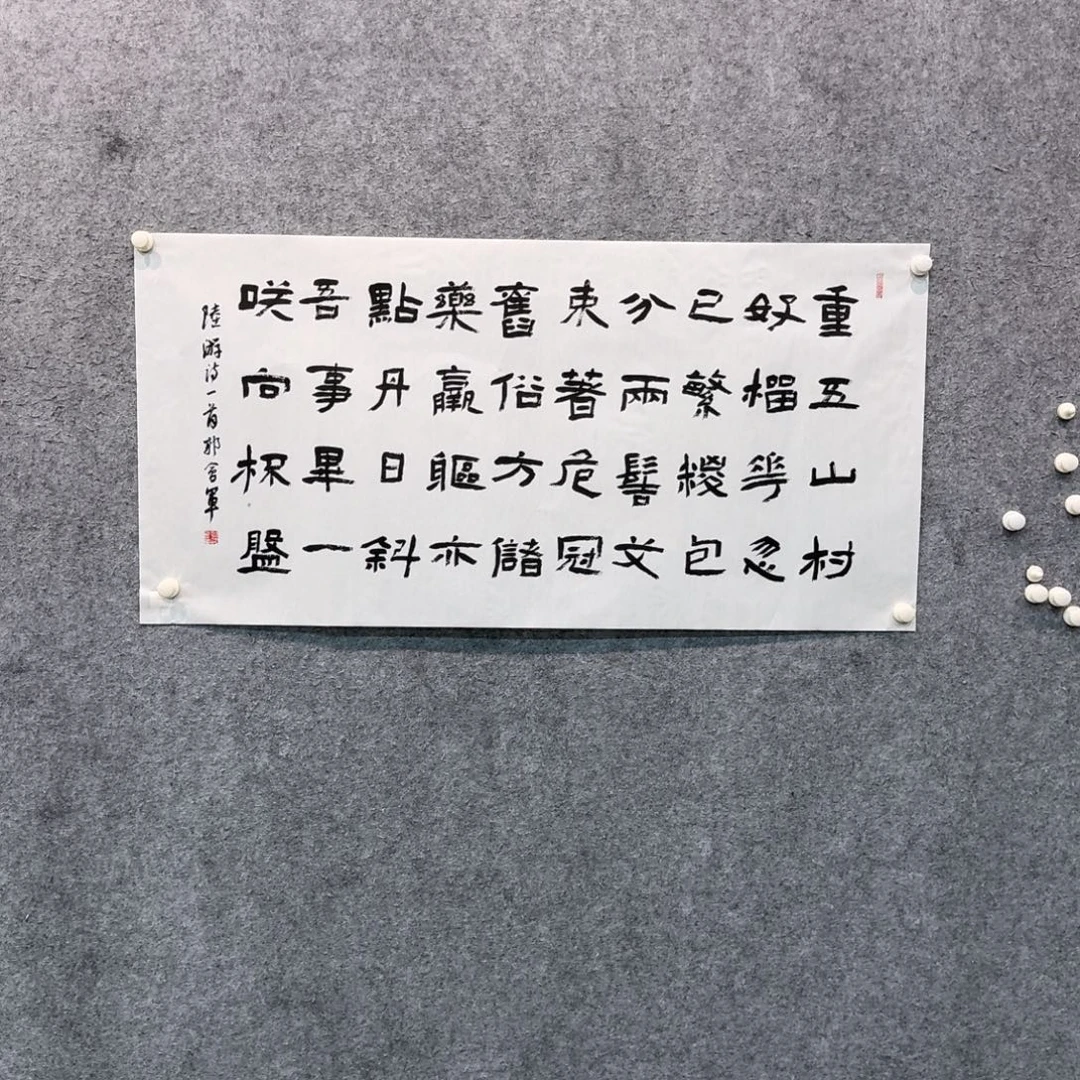 重五山村
好榴華忽
已繁糭包
分兩髻艾
束著危冠
舊俗方儲
藥羸軀亦
點丹日斜
吾事畢一
咲向杯盤
陸游詩一首郭軍